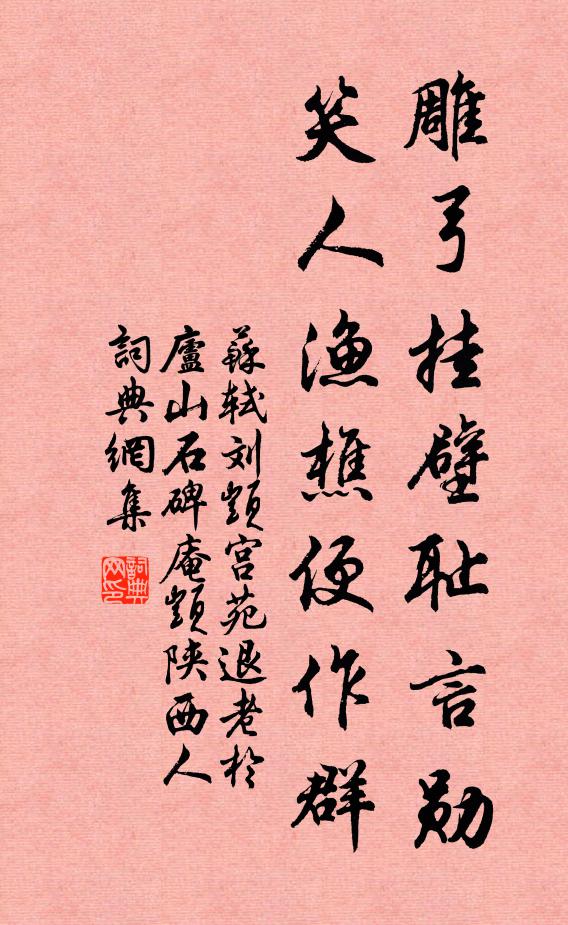 雕弓挂壁耻言勋
笑人渔樵便作群
蘇軾刘顗宫苑退老於
廬山石碑庵顗陕西人
詞典網集
詞典网印